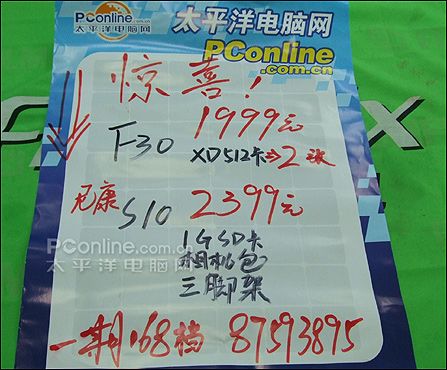 PConline
太平洋电脑网
太平洋电脑网
PConline
.com.cn
惊喜!
F30 1999元
XD512卡→2张
尼康 S10 2399元
1GSD卡
相机包
三脚架
PConline.com.cn
太平洋电脑网
168档 87593895
X